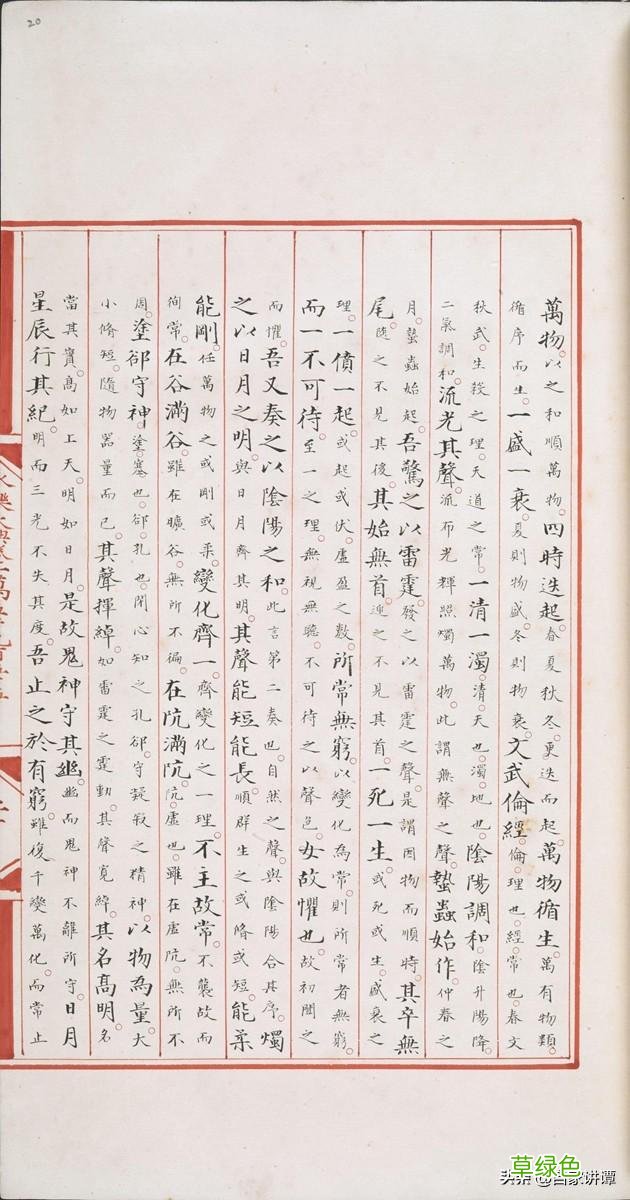 20
萬物。以之和順萬物。四時迭起。春夏秋冬。更迭而起。萬物循生。萬有物類。
循序而生。一盛一衰。夏則物盛。冬則物衰。文武倫經。倫。理也。經。常也。春文
秋武。生殺之理。天道之常。一清一濁。清。天也。濁。地也。陰陽調和。陰升陽降。
二氣調和。流光其聲。流布光輝。照燭萬物。此謂無聲之聲。蟄蟲始作。仲春之
月。蟄蟲始起。吾驚之以雷霆。發之以雷霆之聲。是謂因物而順時。其卒無
尾。隨之不見其後。其始無首。迎之不見其首。一死一生。或死或生。盛衰之
理。一僨一起。或起或伏。虛盈之數。所常無窮。以變化為常。則所常者無窮。
而一不可待。至一之理。無視無聽。不可待之以聲色。女故懼也。故初聞之
而懼。吾又奏之以陰陽之和。此言第二奏也。自然之聲。與陰陽合其序。燭
之以日月之明。與日月齊其明。其聲能短能長。順群生之或脩或短。能柔
能剛。任萬物之或剛或柔。變化齊一。齊變化之一理。不主故常。不襲故而
徇常。在谷滿谷。雖在曠谷。無所不徧。在阬滿阬。阬。虛也。雖在虛阬。無所不
周。塗郤守神。塗。塞也。郤。孔也。閉心知之孔郤。守凝寂之精神。以物為量。大
小脩短。隨物器量而已。其聲揮綽。如雷霆之霆動。其聲寬綽。其名高明。名
當其實。高如上天。明如日月。是故鬼神守其幽。幽而鬼神不離所守。日月
星辰行其紀。明而三光不失其度。吾止之於有窮。雖復千變萬化。而常止
头条 @百家讲谭
草绿色